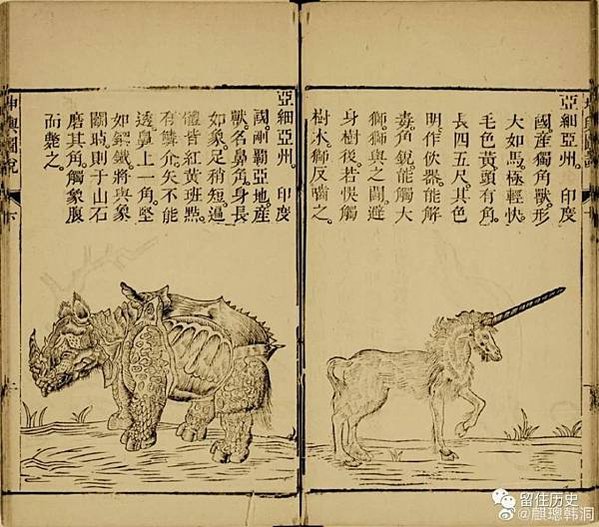 坤輿圖說
亞細亞州。印度
國產獨角獸形
大如馬極輕快
毛色黃頭有角
長四五尺其色
明作飲器能解
毒角銳能觸大
獅獅與之鬭避
身樹後若悞觸
樹木獅反嚙之。
亞細亞州。印度
國剛覇亞地產
獸名鼻角身長
如象足稍短遍
體皆紅黃斑點
有鱗介矢不能
透鼻上一角堅
如鋼鐵將與象
鬭時則于山石
磨其角觸象腹
而斃之。
坤輿圖說 下
留住历史
@麒璁韩洞